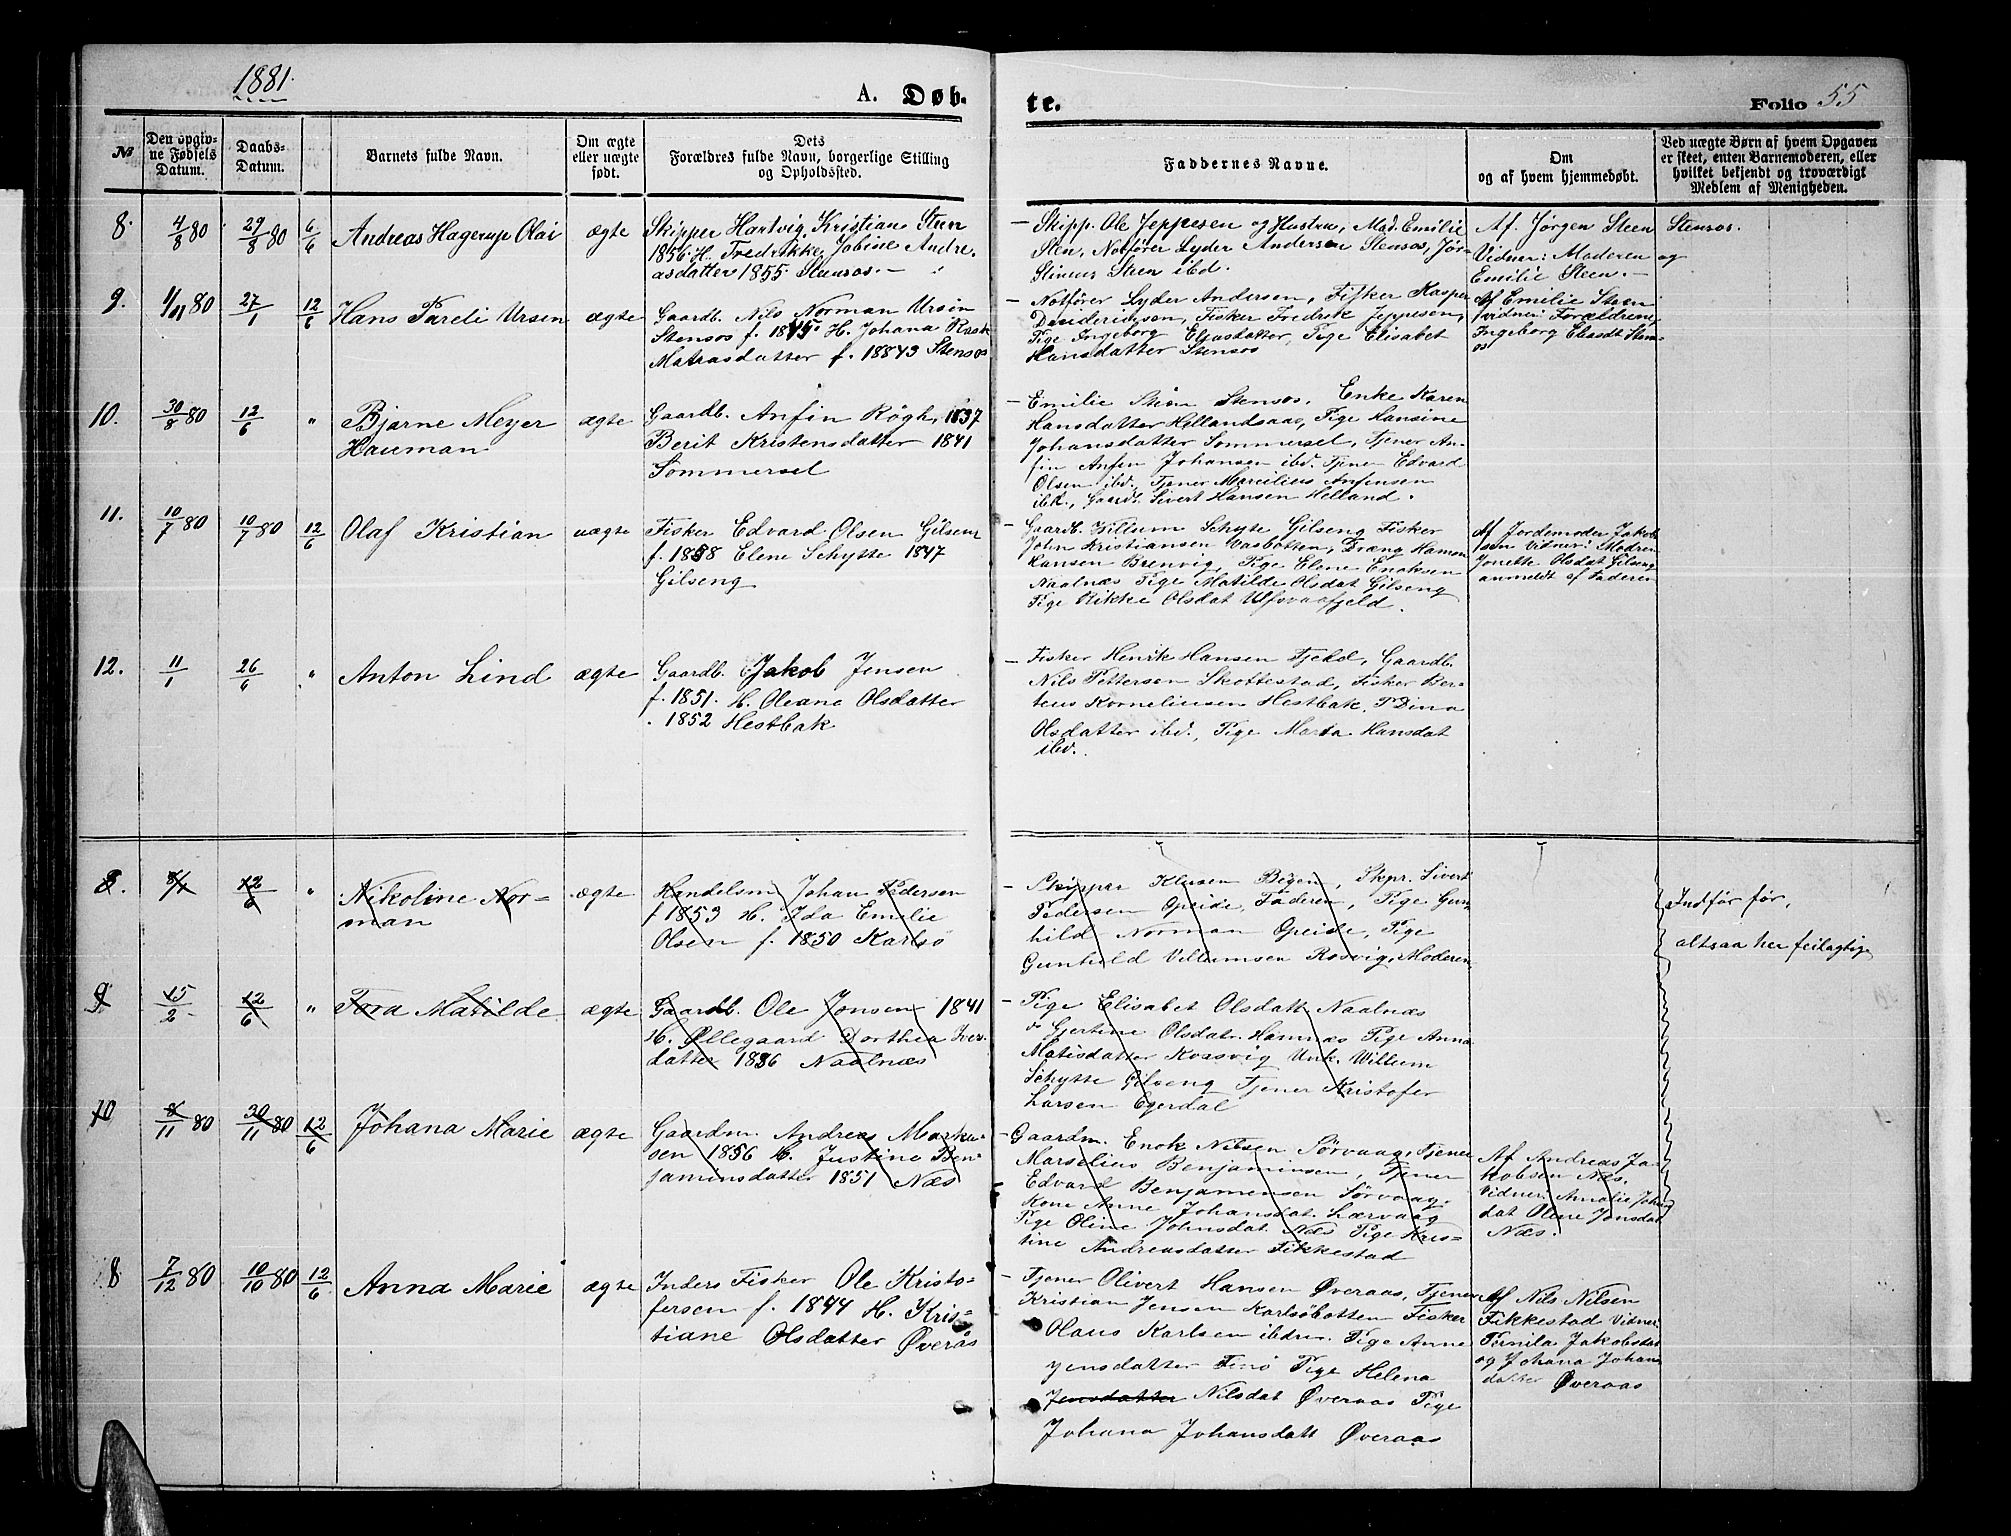 1881.
A. Døb.
te.
Folio 55
№
Den opgiv-
ne Fødsels
Datum.
Daabs-
Datum.
Barnets fulde Navn.
Om ægte
eller uægte
født.
Dets
Forældres fulde Navn, borgerlige Stilling
og Opholdssted.
Faddernes Navne.
Om
og af hvem hjemmedøbt.
Ved uægte Børn af hvem Opgaven
er skeet, enten Barnemoderen, eller
hvilket bekjendt og troværdigt
Medlem af Menigheden.
8. 4/8 80 29/8 80 6/6 Andreas Hagerup Olai ægte
Skipper Hartvig Kristian Steen
1856. H. Fredrikke Jobine Andre-
asdatter 1855. Stensos. —
— Skipp. Ole Jeppesen og Hustru, Mad. Emilie
Sten, Notfører Lyder Andersen Stensos, Jør-
Steen ibd.
Af Jørgen Steen Stensos.
Vidner: Moderen og
Emilie Steen. —
9. 1/11 80 27/1 12/6 Hans Pareli Ursin ægte
Gaardb. Nils Norman Ursin
Stensos f. 1845 H. Johana Rask
Matiasdatter f. 18843 Stensos
— Notfører Lyder Andersen, Fisker Kasper
Desideriussen, Fisker Fredrik Jeppesen,
Pige Ingeborg Eliasdatter, Pige Elisabet
Hansdatter Stensos
Af Emilie Steen
Vidner: Forældrene,
Ingeborg Eliasdt Stens-
os
10. 30/8 80 12/6 " Bjarne Meyer
Hauman
ægte
Gaardb. Anfin Røgh, 1837
Berit Kristensdatter 1841
Sommersel
— Emilie Steen Stensos, Enke Karen
Hansdatter Hellandsaas, Pige Hansine
Johansdatter Sommersel, Tjener An-
fin Anfin Johansen ibd. Tjener Edvard
Olsen ibd., Tjener Marcilius Anfinsen
ibd., Gaardb. Sivert Hansen Helland.
11. 10/7 80 10/7 80 12/6 Olaf Kristian uægte
Fisker Edvard Olsen Gilseng
f. 1858 Elene Schytte 1847
Gilseng
— Gaardb. Villum Schytte Gilseng Fisker
John Kristiansen Vasbotten, Dræng Hamon
Hansen Brenvig, Pige Elene Enoksen
Naalnæs Pige Matilde Olsdat Gilseng
Pige Rikke Olsdat Ulfsvaafjeld.
Af Jordemoder Jakob-
sen Vidner: Modren
Jonette Olsdat Gilseng
anmeldt af Faderen
12. 11/1 26/6 " Anton Lind ægte
Gaardb. Jakob Jensen
f. 1851. H. Oleana Olsdatter
. 1852 Hestbak
— Fisker Henrik Hansen Fjeld, Gaardb.
Nils Pettersen Skottestad, Fisker Ber-
teus Korneliusen Hestbak, P Dina
Olsdatter ibd., Pige Marta Hansdat
ibd.
8. 8/1 12/6 " Nikoline Nor-
man
ægte
Handelsm Johan Pedersen
f 1853 H. Ida Emilie
Olsen f. 1850 Karlsø
— Skipper Klusen Bergen, Skpr. Sivert
Pedersen Opeide, Faderen, Pige Gun
hild Norman Opeide, Pige
Gunhild Villumsen Rosvig, Moderen
Indfør før,
altsaa her feilagtige
9 15/2 12/6 " Tora Matilde ægte
Gaardb. Ole Jonsen 1841
H. Øllegaard Dorthea Iver-
datter 1836 Naalnæs
— Pige Elisabet Olsdatt Naalnæs
" Gjertine Olsdatr. Hamnæs Pige Anna
Matisdatter Kvasvig Unk. Willum
Schytte Gilseng Tjener Kristofer
Larsen Egerdal
10 8/11 80 30/11 80 12/6 Johana Marie ægte
Gaardm. Andreas Marku-
sen 1856 H. Justine Ben-
jaminsdatter 1851 Næs
— Gaardm. Enok Nilsen Sørvaag, Tjener
Marselius Benjaminsen, Tjener
Edvard Benjaminsen Sørvaag.
Kone Anne Johansdat. Lærvaag
Pige Oline Johnsdat Næs Pige Kris-
tine Andreasdatter Fikkestad
Af Andreas Ja-
kobsen Næs.
Vidner: Amalie Johan
dat Olene Jonsdat
Næs.
8 7/12 80 10/10 80 12/6 Anna Marie ægte
Inders Fisker Ole Kristo-
fersen f. 1844 H. Kris-
tiane Olsdatter Øverås
— Tjener Olivert Hansen Øveraas, Tjener
Kristian Jensen Karlsøbotten Fisker
Olaus Karlsen ibdm. Pige Anne
Jensdatter Finø Pige Helena
Jensdatter Nilsdat Øveraas Pige
Johana Johansdatt Øveraas
Af Nils Nilsen
Fikkestad Vidner:
Pernila Jakobsdat
og Johana Johans
datter Øveraas